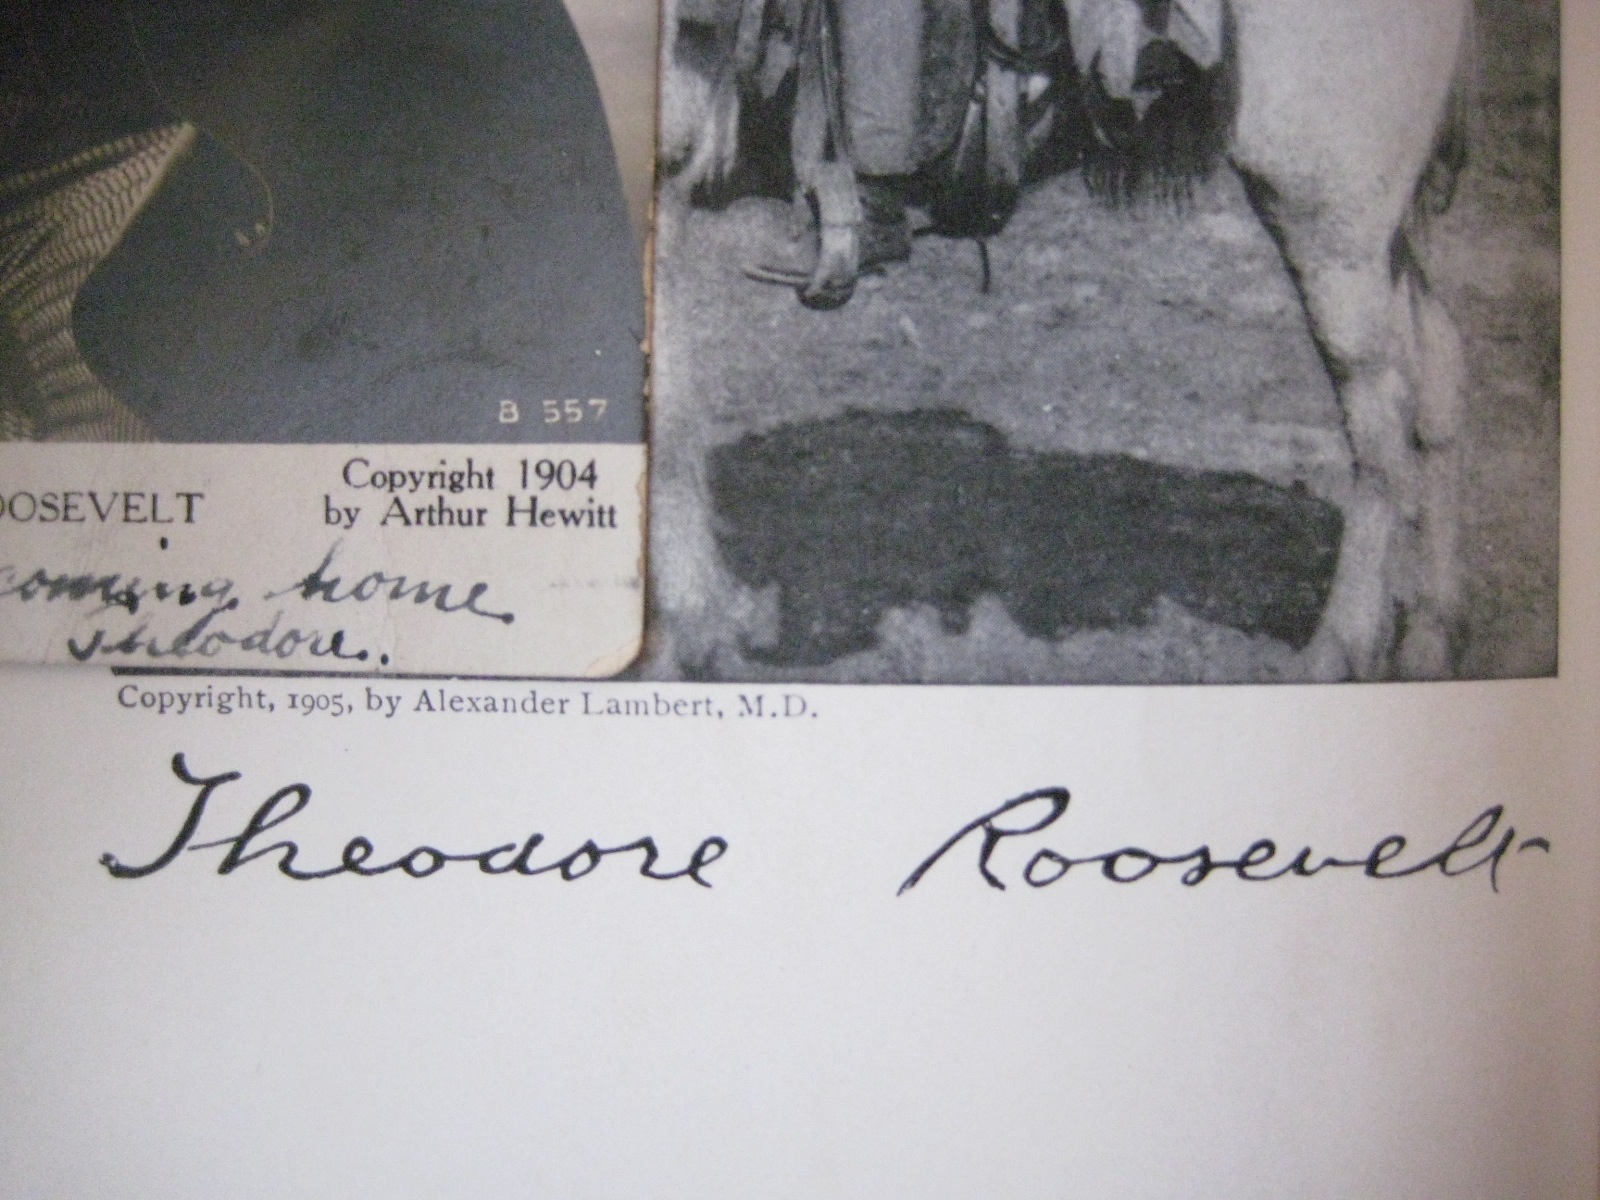 B 557
Copyright 1904
OOSEVELT by Arthur Hewitt
coming home
Theodore.
Copyright, 1905, by Alexander Lambert, M.D.
Theodore Roosevelt